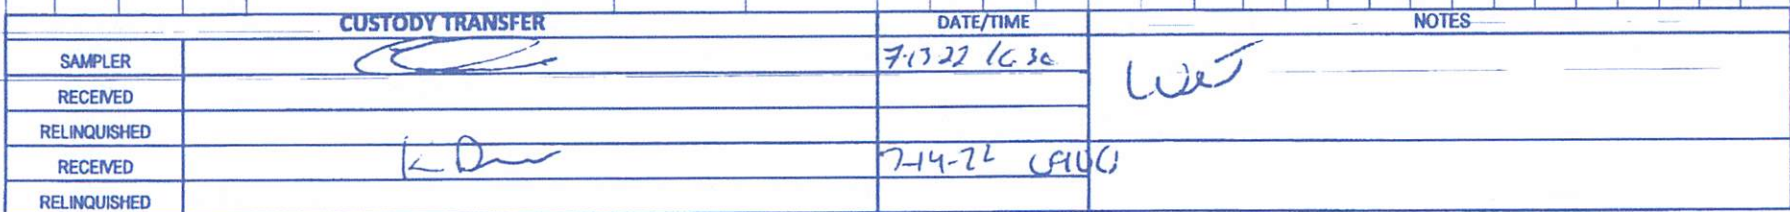 CUSTODY TRANSFER DATE/TIME NOTES
SAMPLER 7-13-22 16:30 Wet
RECEIVED
RELINQUISHED
RECEIVED 7-14-22
RELINQUISHED